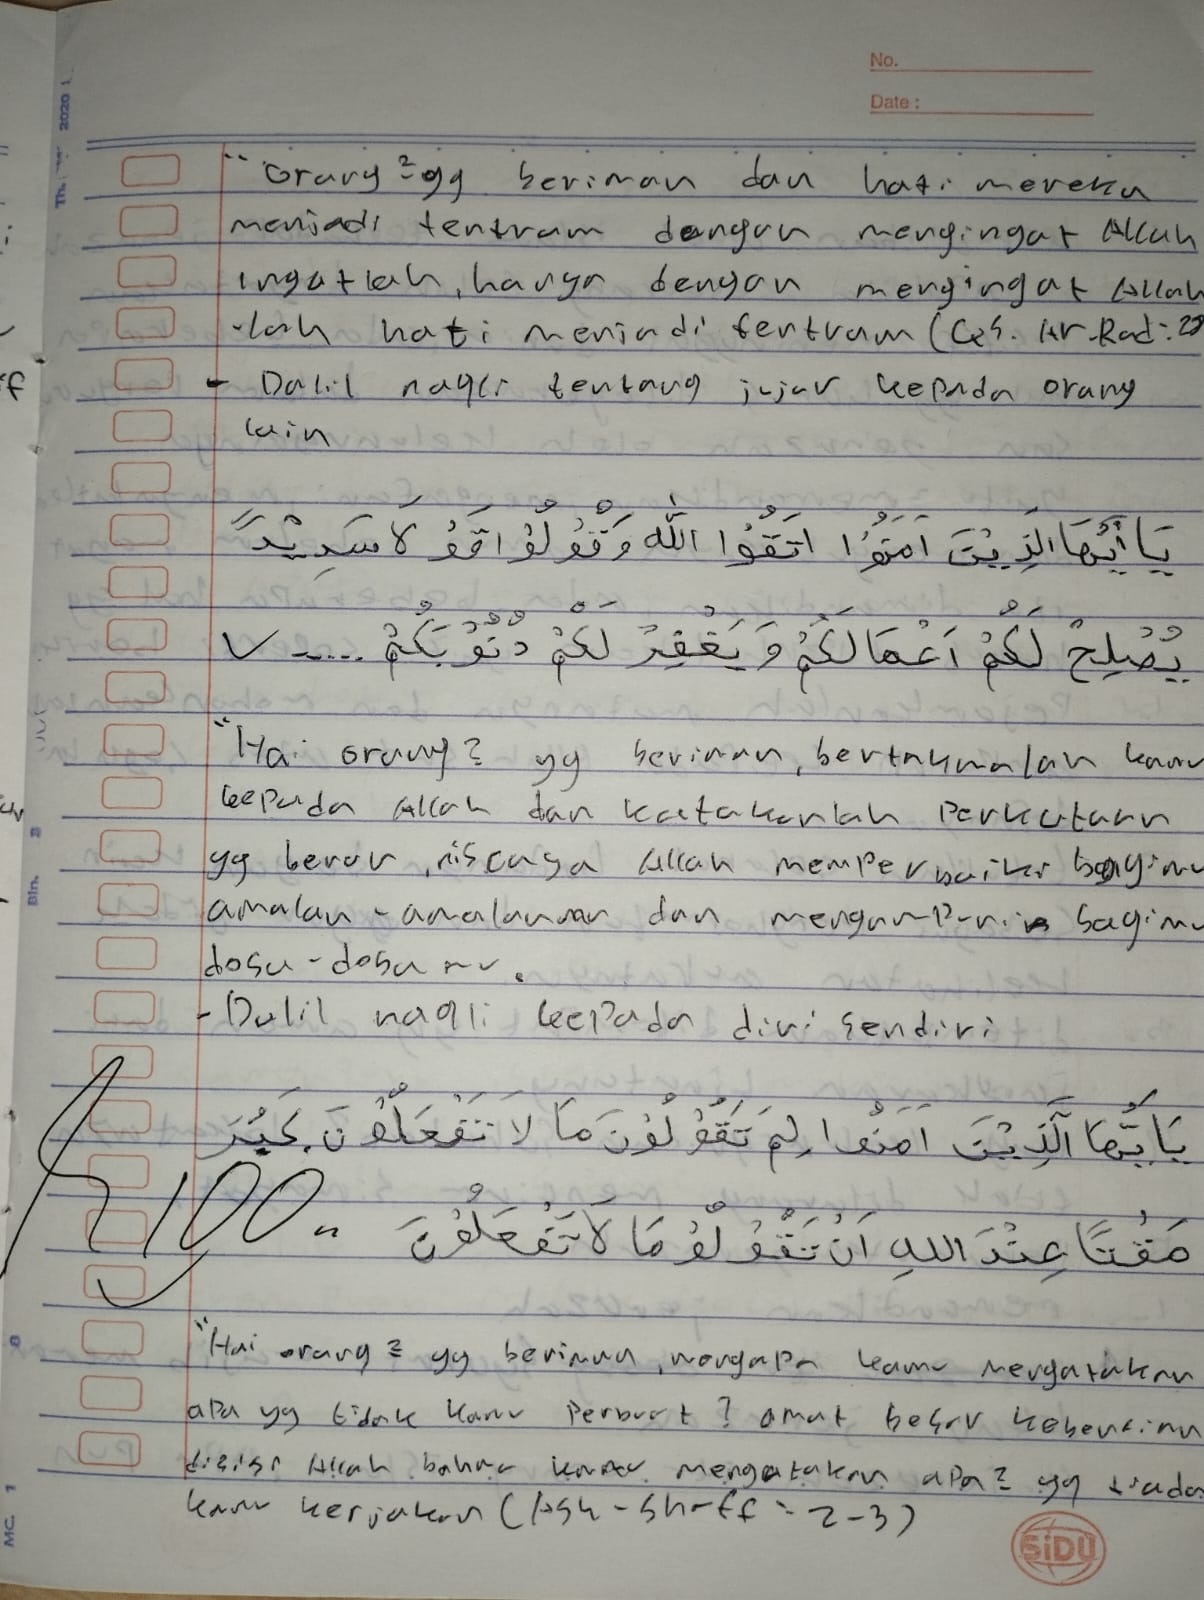 No.
Date :
"Orang² yg beriman dan hati mereka
menjadi tentram dengan mengingat Allah
ingatlah, hanya dengan mengingat Allah
-lah hati menjadi tentram (Qs. Ar-Rad: 28
- Dalil naqli tentang jujur kepada orang
lain
يَا أَيُّهَا الَّذِيْنَ اٰمَنُوا اتَّقُوا اللّٰه وَقُوْلُوْا قَوْ لًا سَدِيْدًا
يُصْلِحْ لَكُمْ اَعْمَالَكُمْ وَ يَغْفِرْ لَكُمْ ذُنُوْبَكُمْ .....
"Hai orang² yg beriman, bertaqwalah kamu
kepada Allah dan katakanlah Perkataan
yg benar, niscaya Allah memperbaiki bagimu
amalan-amalanmu dan mengampuni bagimu
dosa-dosamu.
- Dalil naqli kepada diri sendiri
يَا يُّهَا الَّذِيْنَ اٰمَنُوا لِمَ تَقُوْلُوْنَ مَا لَا تَفْعَلُوْنَ كَبُرَ
مَقْتًا عِنْدَ اللهِ اَنْ تَقُوْ لُوْ مَا لَا تَفْعَلُوْنَ
100
"Hai orang² yg beriman, mengapa kamu mengatakan
apa yg tidak kamu Perbuat? amat besar kebencian
disisi Allah bahwa kamu mengatakan apa² yg tiada
kamu kerjakan (Ash-Shaff: 2-3)
SiDU